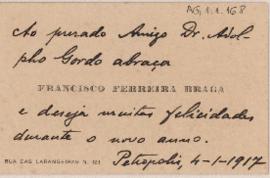 AG.1.1.168
Ao presado Amigo Dr. Adol-
pho Gordo abraça
FRANCISCO FERREIRA BRAGA
e deseja muitas felicidades
durante o novo anno.
Petropolis, 4-1-1917
RUA DAS LARANGEIRAS N.